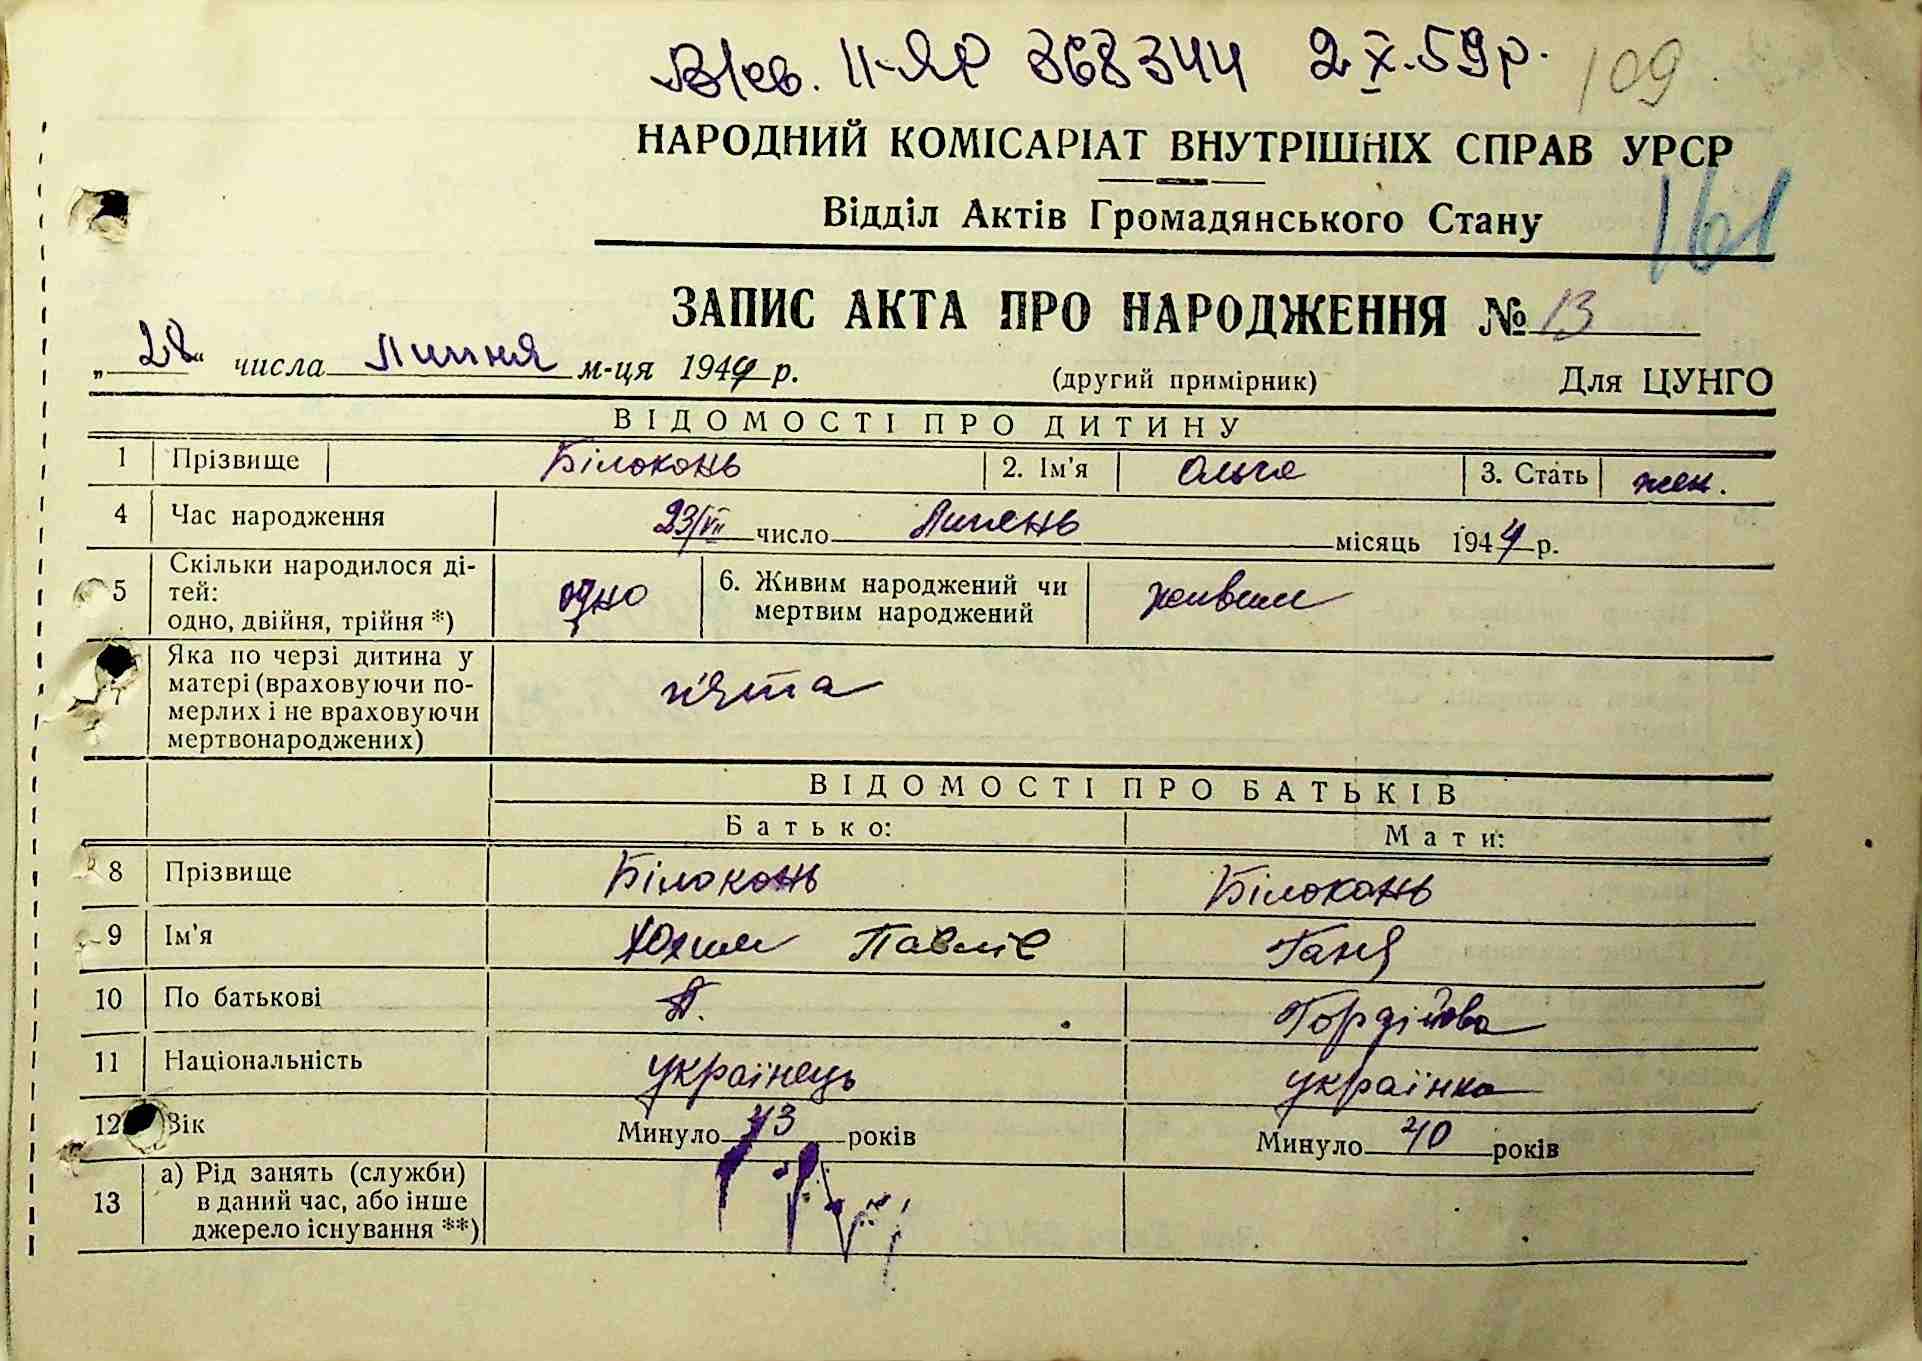 II-ЯР 368344 2.X.59р. 109
НАРОДНИЙ КОМІСАРІАТ ВНУТРІШНІХ СПРАВ УРСР
Відділ Актів Громадянського Стану
161
ЗАПИС АКТА ПРО НАРОДЖЕННЯ № 13
„28“ числа Липня м-ця 1944 р. (другий примірник) Для ЦУНГО
ВІДОМОСТІ ПРО ДИТИНУ
1 Прізвище Білоконь 2. Ім'я Ольга 3. Стать жен.
4 Час народження 23/VII число Липень місяць 1944 р.
5 Скільки народилося ді-
тей:
одно, двійня, трійня *) одно 6. Живим народжений чи
мертвим народжений живим
7 Яка по черзі дитина у
матері (враховуючи по-
мерлих і не враховуючи
мертвонароджених) п'ята
ВІДОМОСТІ ПРО БАТЬКІВ
Батько: Мати:
8 Прізвище Білоконь Білоконь
9 Ім'я Юхим Павлів Ганя
10 По батькові П. Гордійова
11 Національність українець українка
12 Вік Минуло 43 років Минуло 40 років
13 а) Рід занять (служби)
в даний час, або інше
джерело існування **)